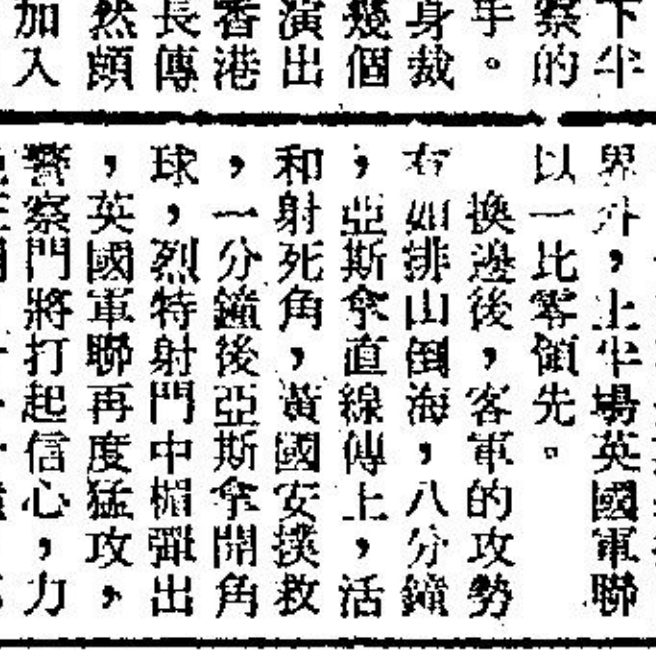 下半
察的
手。
身裁
幾個
演出
香港
長傳
然頗
加入
界外，上半場英國軍聯
以一比零領先。
換邊後，客軍的攻勢
有如排山倒海，八分鐘
，亞斯拿直線傳上，活
和射死角，黃國安撲救
，一分鐘後亞斯拿開角
球，烈特射門中楣彈出
，英國軍聯再度猛攻，
警察門將打起信心，力